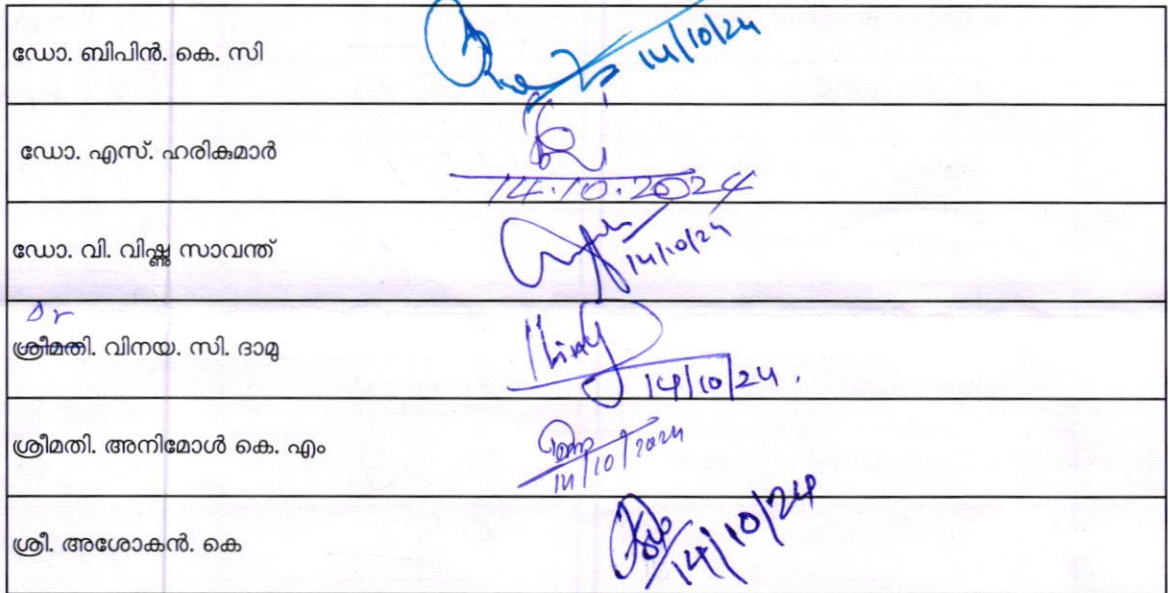 ഡോ. ബിപിൻ. കെ. സി
14/10/24
ഡോ. എസ്. ഹരികുമാർ
14.10.2024
ഡോ. വി. വിഷ്ണു സാവന്ത്
14/10/24
Dr
ശ്രീമതി. വിനയ. സി. ദാമു
14/10/24.
ശ്രീമതി. അനിമോൾ കെ. എം
14/10/2024
ശ്രീ. അശോകൻ. കെ
14/10/24